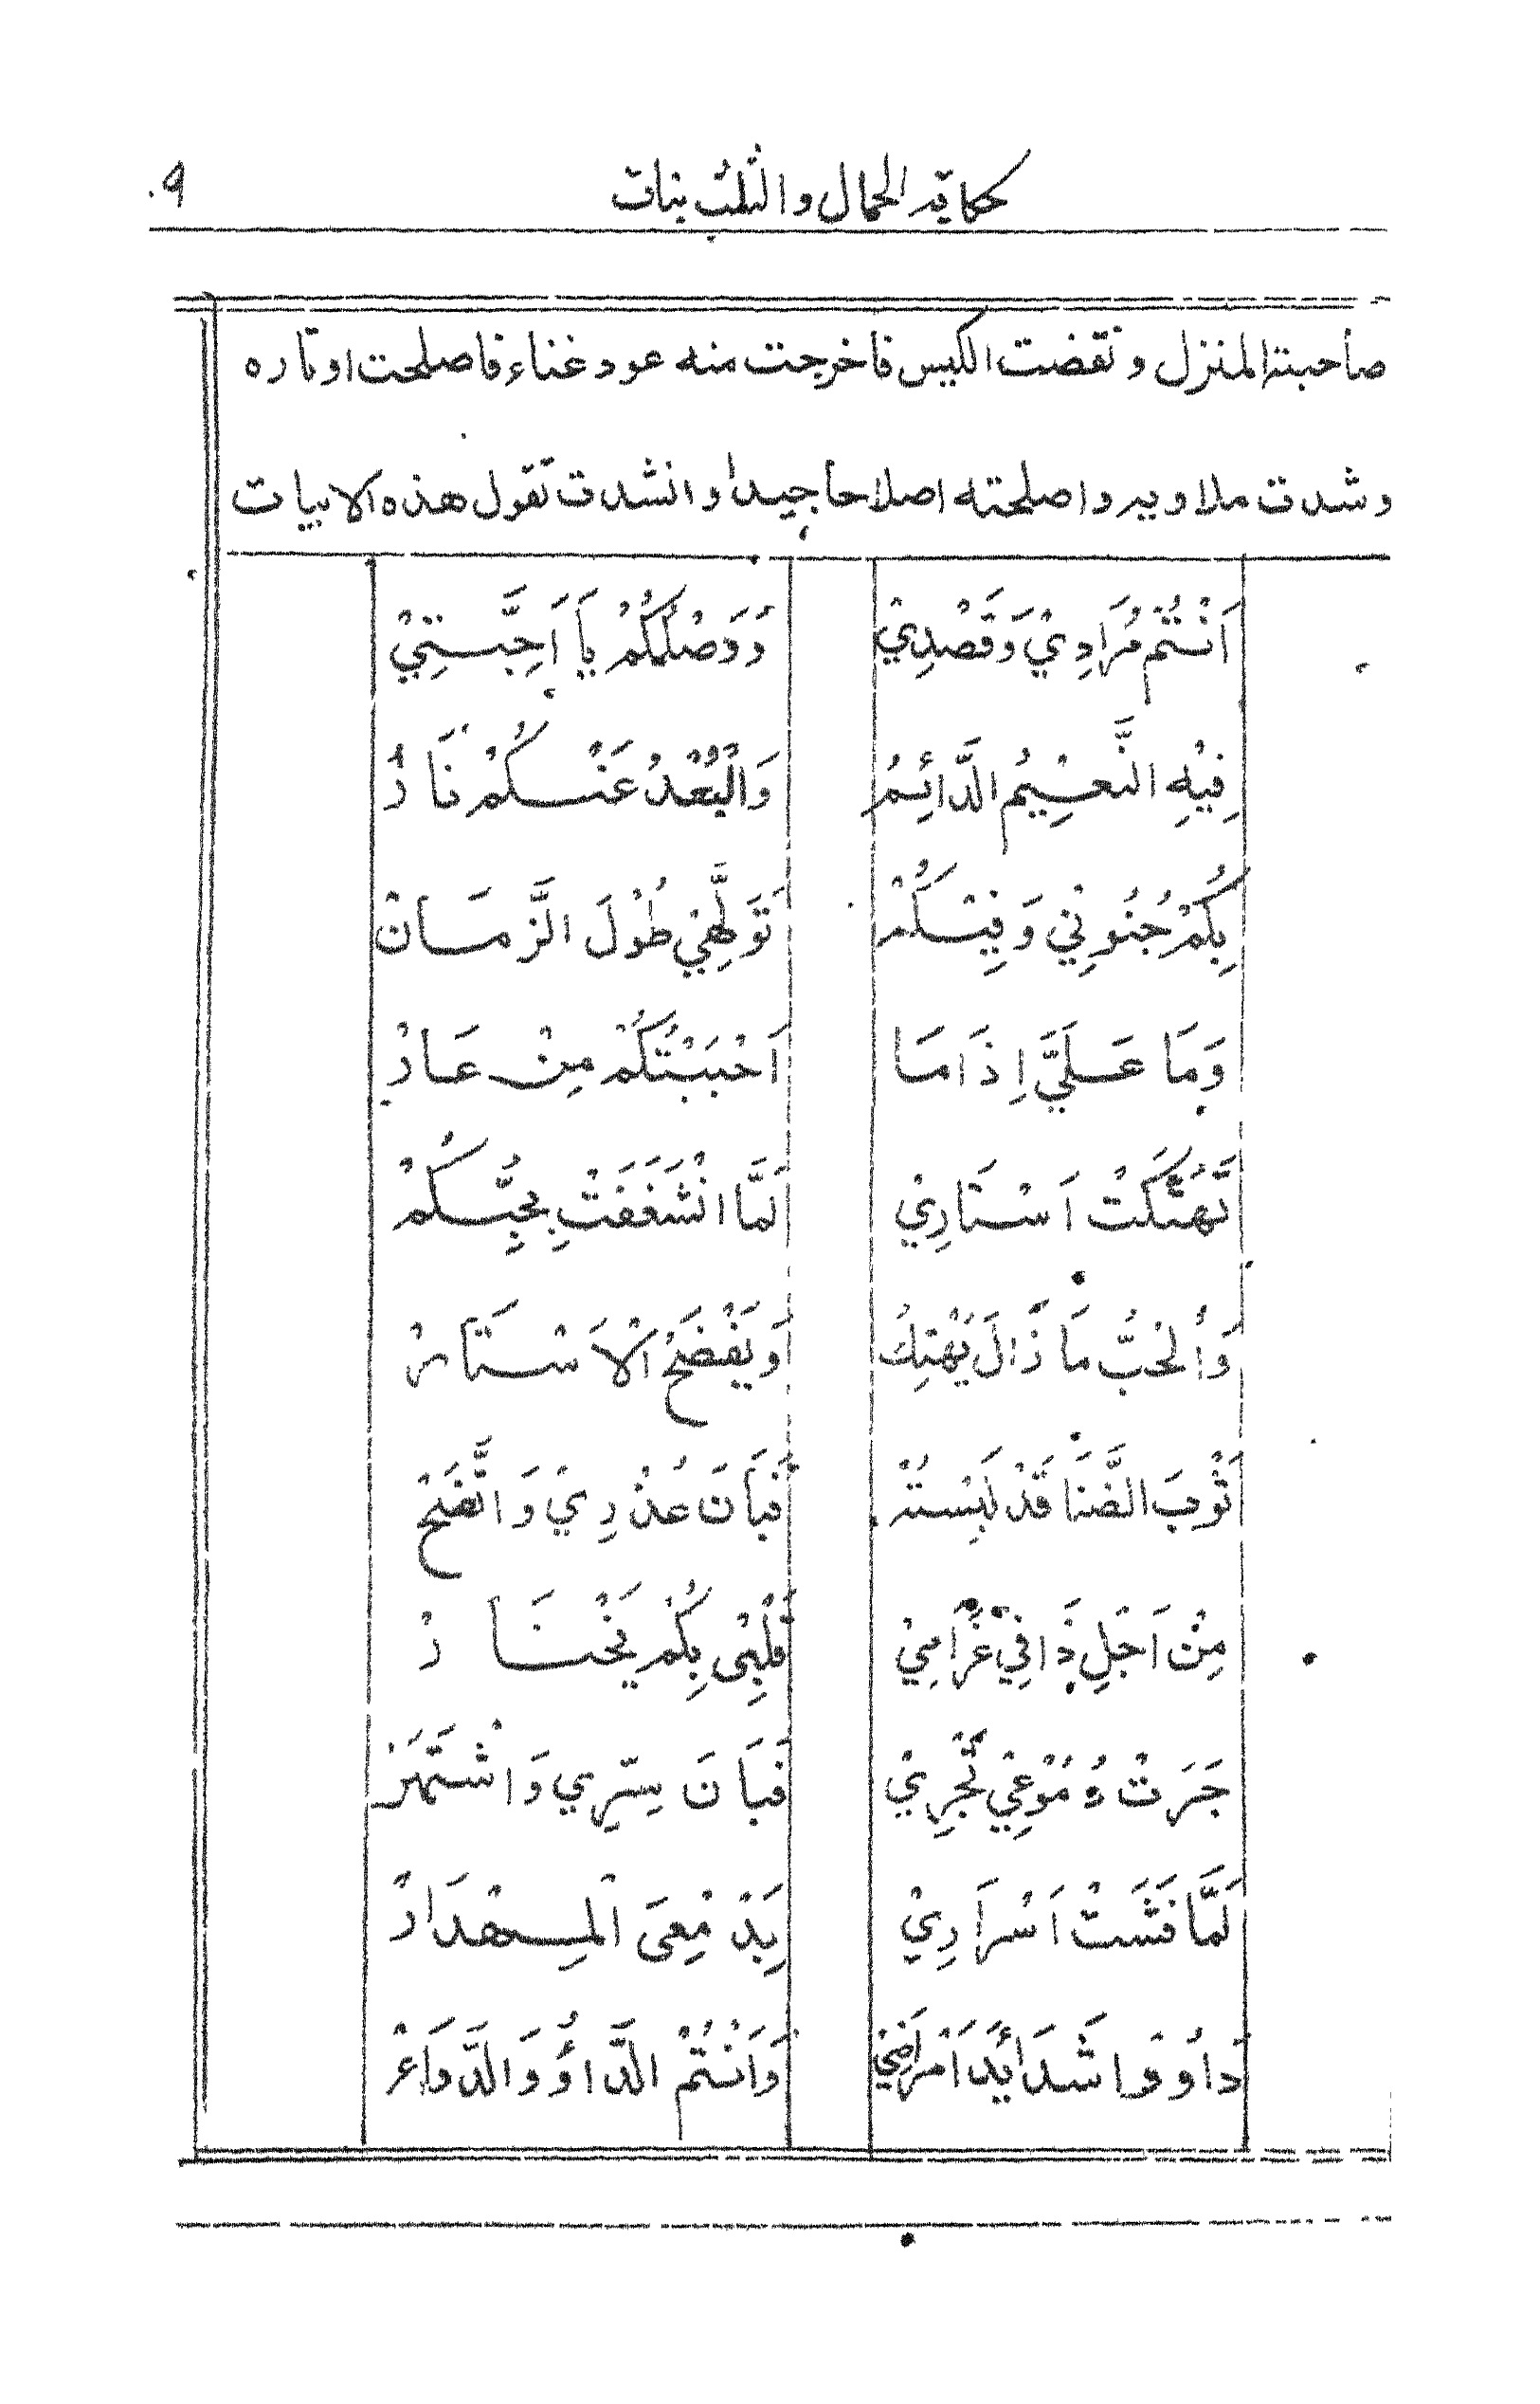 حكاية الحمال والثلث بنات
٩٠
صاحبة المنزل ونقضت الكيس فاخرجت منه عود غناء فاصلحت اوتاره
وشدت ملاويه واصلحته اصلاحا جيدا وانشدت تقول هذه الابيات
اَنْتُمْ مُرَادِيْ وَقَصْدِيْ وَوَصْلُكُمْ يَا اَحِبَّتِيْ
فِيْهِ النَّعِيْمُ الدَّائِمُ وَالْبُعْدُ عَنْكُمْ نَارْ
بِكُمْ جُنُونِي وَفِيْكُمْ تَوَلُّهِيْ طُوْلَ الزَّمَانْ
وَمَا عَلَيَّ اِذَا مَا اَحْبَبْتُكُمْ مِنْ عَارْ
تَهَتَّكَتْ اَسْتَارِيْ لَمَّا انْشَغَفَتْ بِحُبِّكُمْ
وَالْحُبُّ مَا زَالَ يُهْتِكُ وَيَفْضَحُ الْاَسْتَارْ
ثَوْبَ الضَّنَا قَدْ لَبِسْتُهْ فَبَانَ عُذْرِيْ وَاتَّضَحْ
مِنْ اَجَلِ ذَا فِي غَرَامِيْ قَلْبِى بِكُمْ يَحْتَارْ
جَرَتْ دُمُوْعِيْ تَجْرِيْ فَبَانَ سِرِّي وَاشْتَهَرْ
لَمَّا فَشَتْ اَسْرَارِيْ بِدَمْعِىَ الْمِهْدَارْ
دَاوُوْا شَدَائِدَ اَمْرَاضِيْ وَاَنْتُمْ الدَّاؤُ وَالدَّوَاءْ